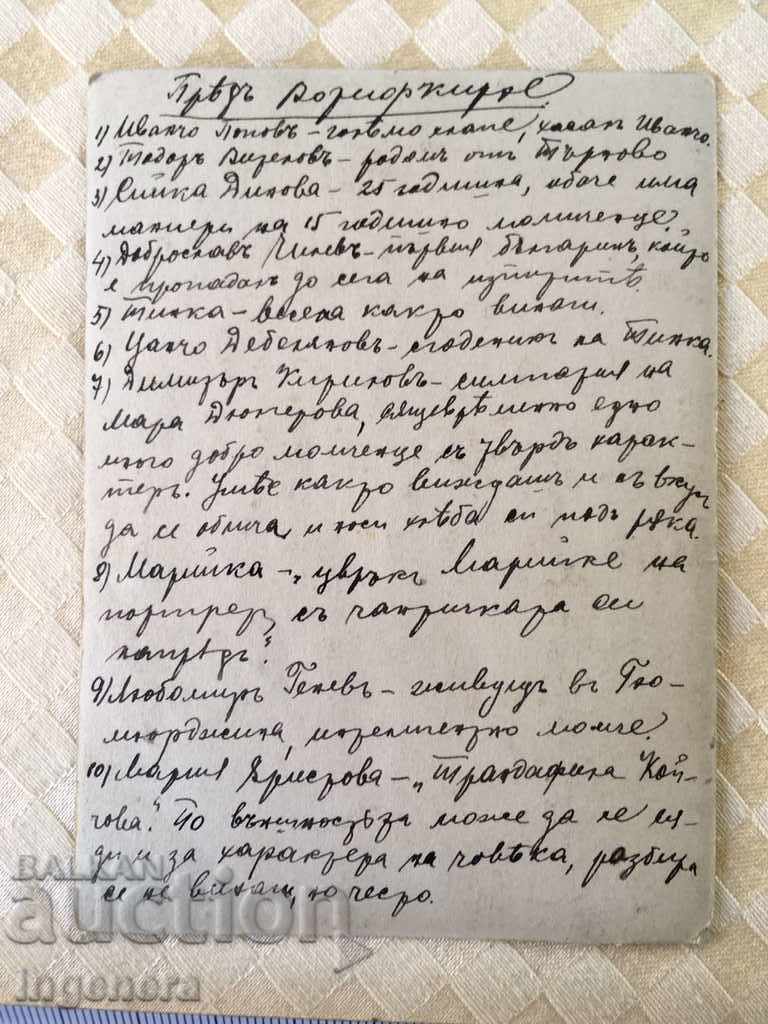 Прѣдъ
1) Иванчо Поповъ – голѣмо Иванчо.
2) Тодоръ – родомъ отъ Търново
3) Сийка Динова – 25 годишна, обаче има
маниери на 15 годишно момиченце.
4) Доброславъ – първия българинъ, който
е пропаданъ до сега на изпититѣ.
5) Тинка – весела както винаги.
6) Цанчо Дебеляновъ – годеникъ на Тинка.
7) Димитъръ Кириловъ – симпатия на
Мара Дюлгерова, сящеврѣменно едно
много добро момченце съ твърдъ харак-
теръ. Умѣе както виждашъ и съ
да се облича, и носи хлѣба си подъ рѫка.
8) Марийка – „ Марийке на
портретъ съ чантичката си
напрѣдъ".
9) Любомиръ Геневъ – живущъ въ Гю-
мюрджина, интелигентно момче.
10) Мария Христова – „Трандафила Кой-
чова". По външностьта може да се сѫ-
ди и за характера на човѣка, разбира
се не винаги, но често.
BALKAN
auction
Ingenera